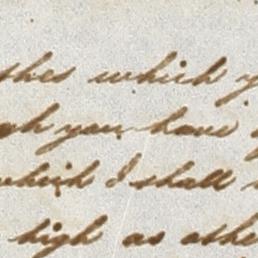 shes which y
gh you have
which I shall
high as othe